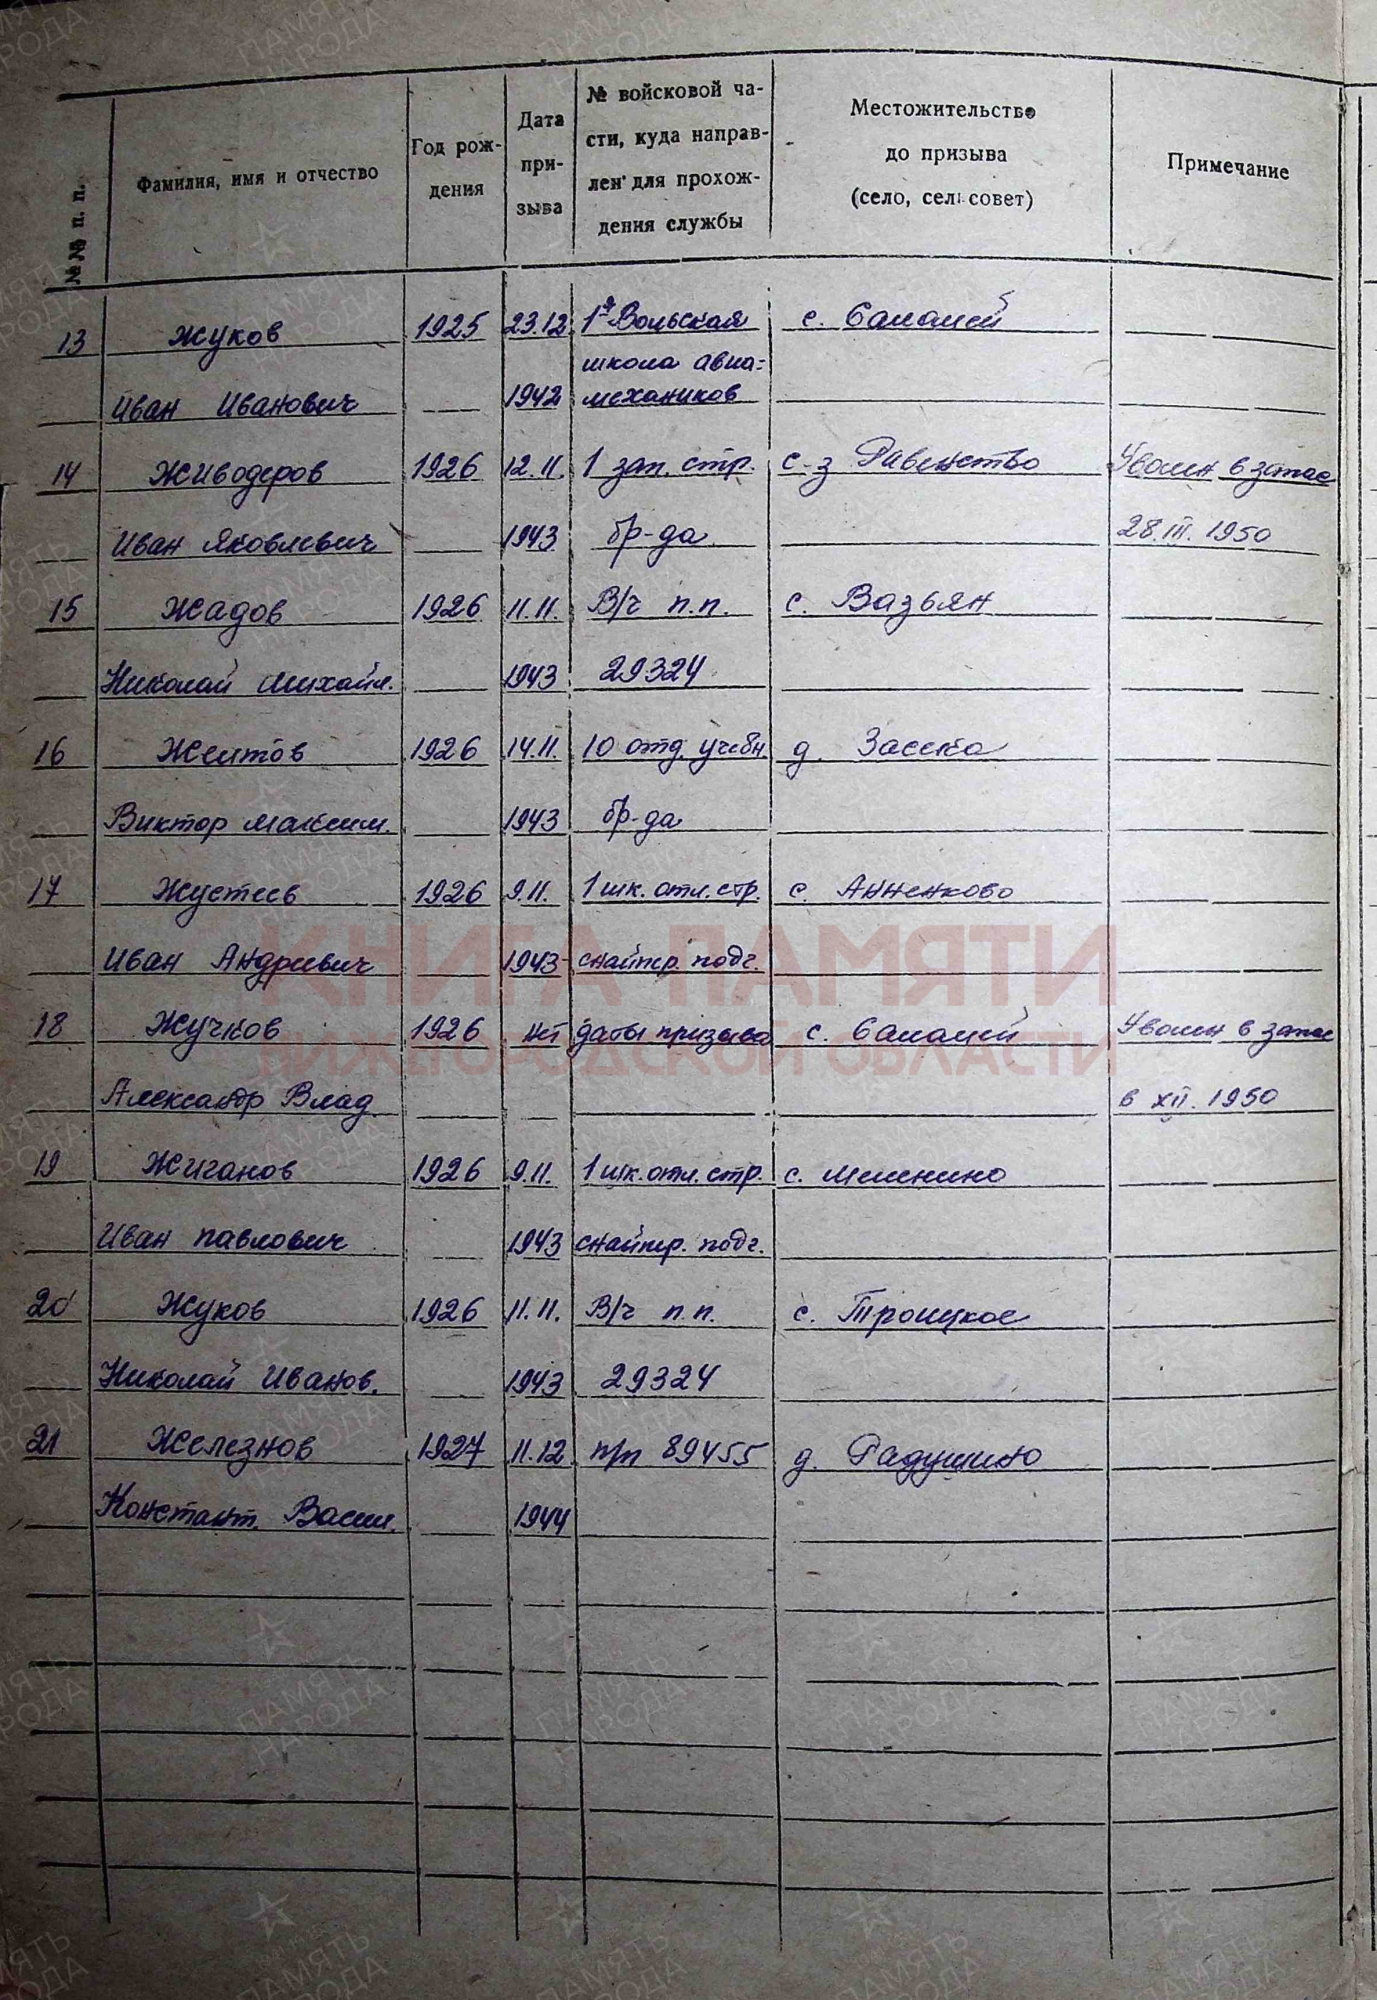 №№ п. п. Фамилия, имя и отчество Год рождения Дата призыва № войсковой части, куда направлен для прохождения службы Местожительство до призыва (село, сельсовет) Примечание
13 Жуков 1925 23.12 1я Вольская с. Саламей
школа авиа=
Иван Иванович 1942 механиков
14 Живодеров 1926 12.11. 1 зап. стр. с-з Равенство Уволен в запас
Иван Яковлевич 1943 бр-да 28.III.1950
15 Жадов 1926 11.11. В/ч п.п. с. Вазьян
Николай Михайл. 1943 29324
16 Желтов 1926 14.11. 10 отд. учебн. д. Засека
Виктор Максим. 1943 бр-да
17 1926 9.11. 1 шк. отл. стр. с. Анненково
Иван Андреевич 1943 снайпер. подг.
КНИГА ПАМЯТИ
18 Жучков 1926 нет даты призыва с. Саламей Уволен в запас
НИЖЕГОРОДСКОЙ ОБЛАСТИ
Александр Влад. в XII.1950
19 Жиганов 1926 9.11. 1 шк. отл. стр. с.
Иван Павлович 1943 снайпер. подг.
20 Жуков 1926 11.11. В/ч п.п. с. Троицкое
Николай Иванов. 1943 29324
21 Железнов 1927 11.12 п/п 89455 д. Радушино
Констант. Васил. 1944
ПАМЯТЬ НАРОДА